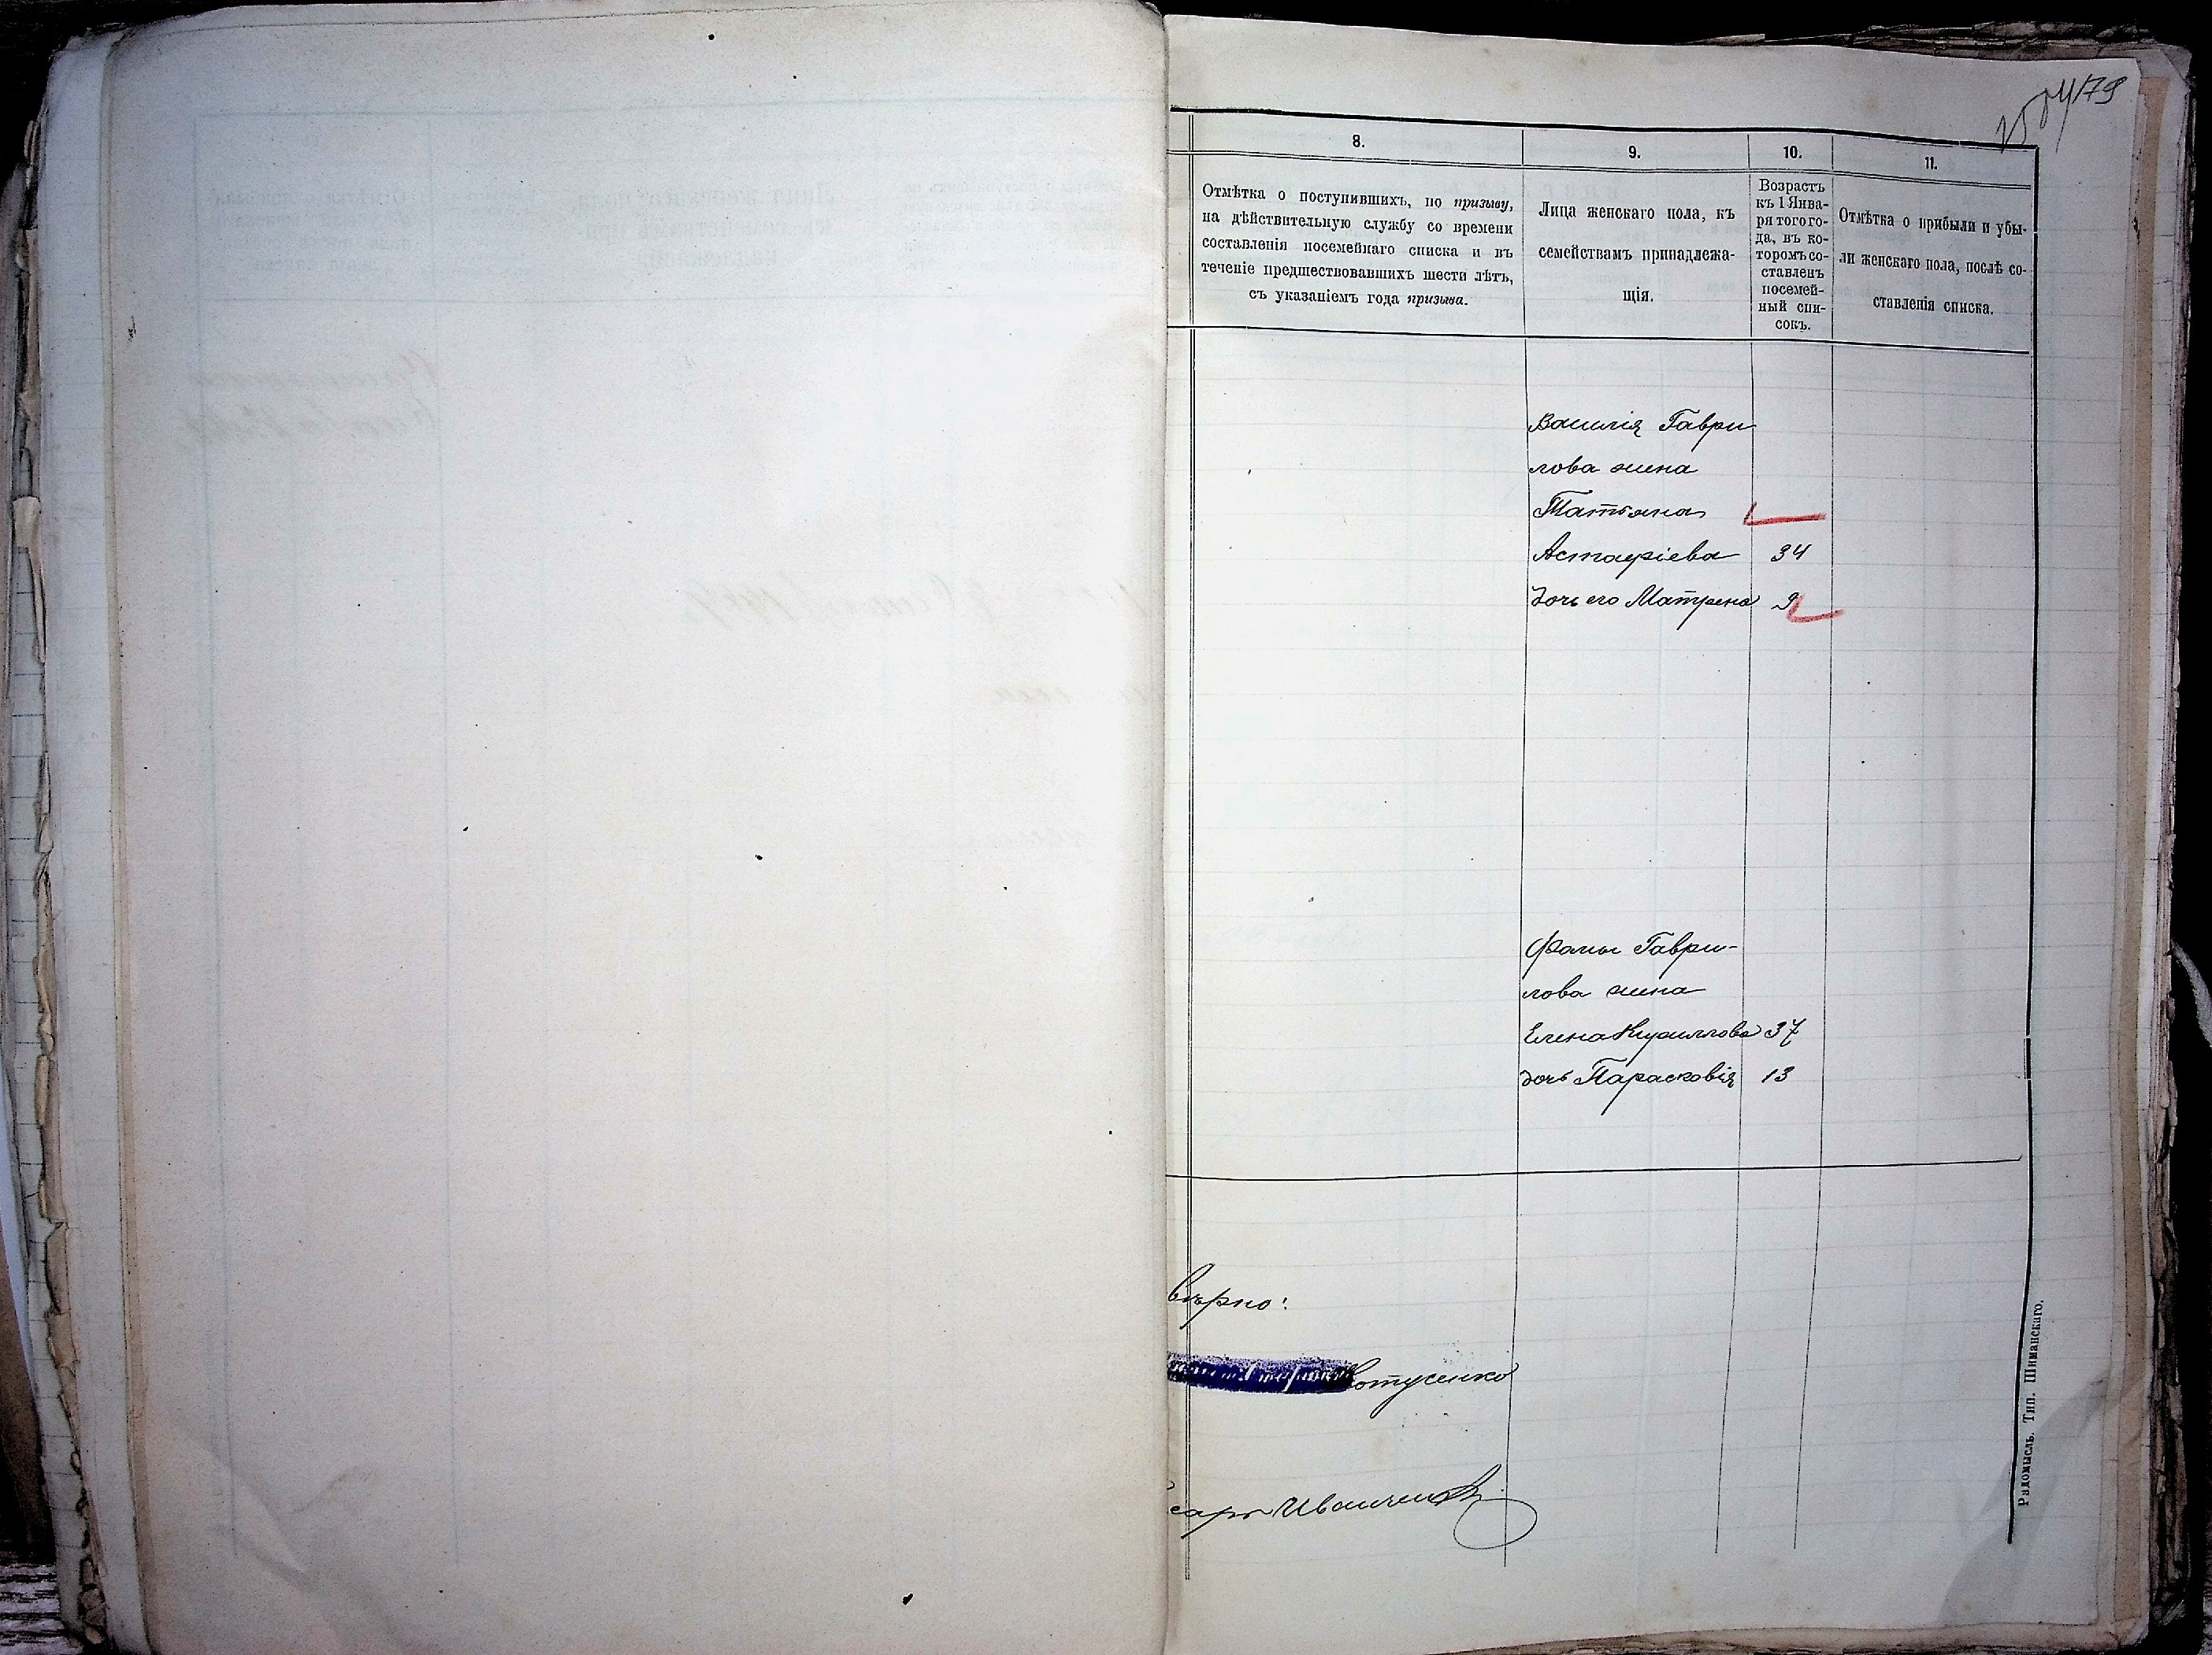 179
8.
9.
10.
11.
Отмѣтка о поступившихъ, по призыву,
на дѣйствительную службу со времени
составленія посемейнаго списка и въ
теченіе предшествовавшихъ шести лѣтъ,
съ указаніемъ года призыва.
Лица женскаго пола, къ
семействамъ принадлежа-
щія.
Возрастъ
къ 1 Янва-
ря того го-
да, въ ко-
торомъ со-
ставленъ
посемей-
ный спи-
сокъ.
Отмѣтка о прибыли и убы-
ли женскаго пола, послѣ со-
ставленія списка.
Василія Гаври
лова жена
Татьяна
Астафіева 34
дочь его Матрена 9
Фомы Гаври-
лова жена
Елена Кириллова 37
дочь Парасковія 13
вѣрно:
сарь Иванченко
Радомысль. Тип. Шиманскаго.